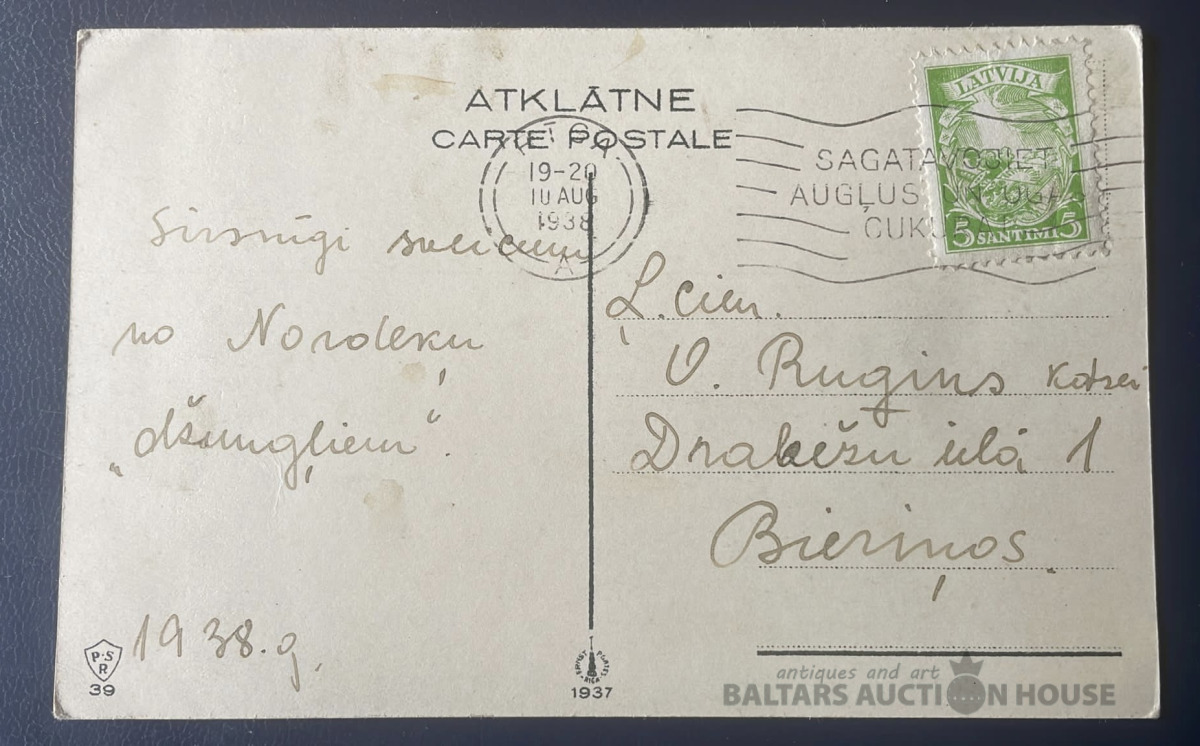 ATKLĀTNE
CARTE POSTALE
RĪGA
19-20
10 AUG
1938
A
SAGATAVOJIET
AUGĻUS UN OGAS
CUKURĀ
LATVIJA
5 SANTIMI 5
Sirsnīgi sveicieni
no Nordeķu
„džungļiem“.
1938. g.
Ļ. cien.
V. Rugins kdzei
Drabēžu ielā 1
Bieriņos.
P·S
R
39
1937
antiques and art
BALTARS AUCTION HOUSE